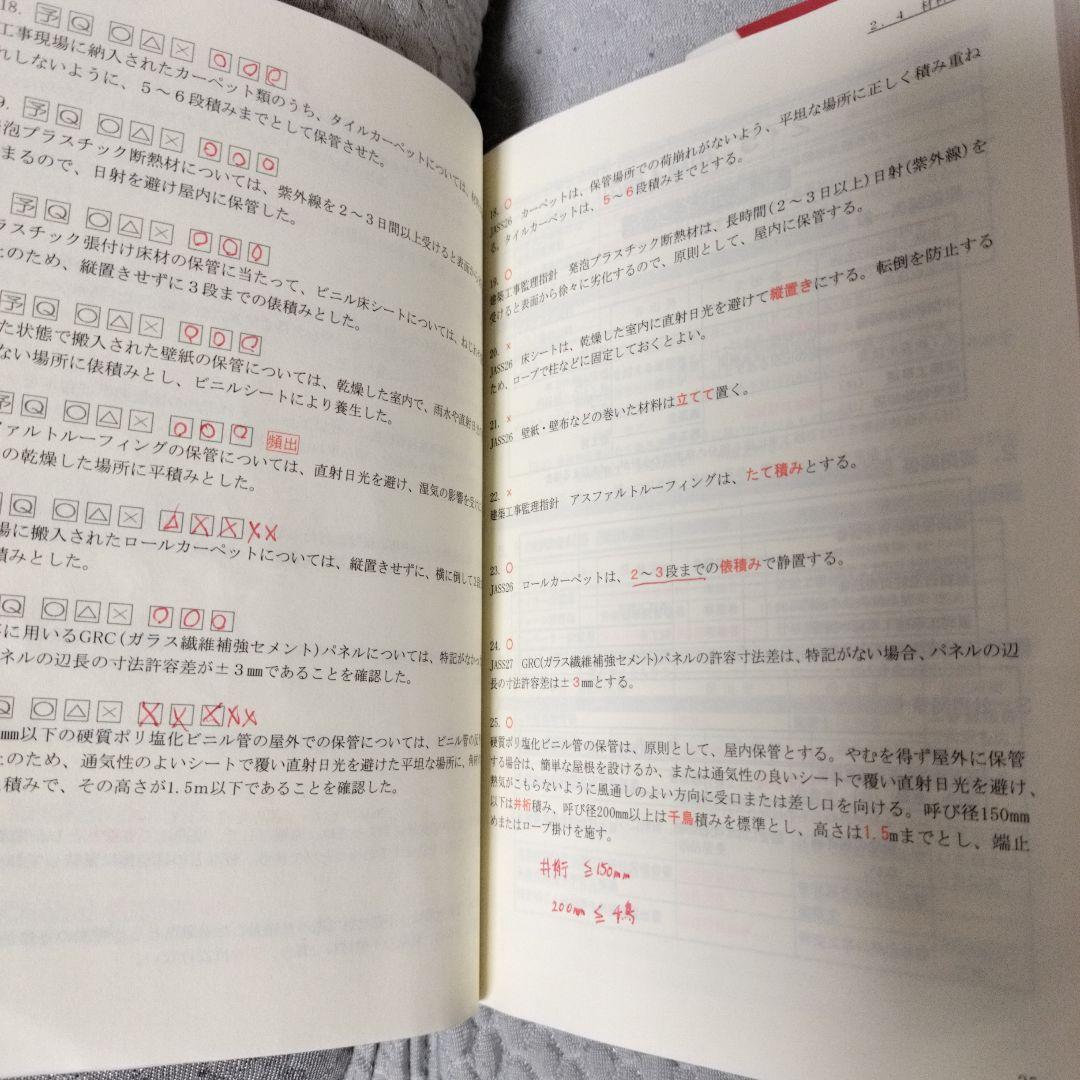 18. 予 Q ○ △ ×
工事現場に納入されたカーペット類のうち、タイルカーペットについては、
れしないように、5～6段積みまでとして保管させた。
9. 予 Q ○ △ ×
泡プラスチック断熱材については、紫外線を2～3日間以上受けると表面から
まるので、日射を避け屋内に保管した。
予 Q ○ △ ×
ラスチック張付け床材の保管に当たって、ビニル床シートについては、ねじ
のため、縦置きせずに3段までの俵積みとした。
予 Q ○ △ ×
た状態で搬入された壁紙の保管については、乾燥した室内で、雨水や直射日
ない場所に俵積みとし、ビニルシートにより養生した。
予 Q ○ △ × 頻出
ファルトルーフィングの保管については、直射日光を避け、湿気の影響を受け
の乾燥した場所に平積みとした。
Q ○ △ ×
場に搬入されたロールカーペットについては、縦置きせずに、横に倒して2
積みとした。
Q ○ △ ×
に用いるGRC(ガラス繊維補強セメント)パネルについては、特記がなか
ネルの辺長の寸法許容差が±3mmであることを確認した。
Q ○ △ ×
mm以下の硬質ポリ塩化ビニル管の屋外での保管については、ビニル管の
のため、通気性のよいシートで覆い直射日光を避けた平坦な場所に、
積みで、その高さが1.5m以下であることを確認した。
2．4 材料
18. ○
JASS26 カーペットは、保管場所での荷崩れがないよう、平坦な場所に正しく積み重ね
る。タイルカーペットは、5～6段積みまでとする。
19. ○
建築工事監理指針 発泡プラスチック断熱材は、長時間(2～3日以上)日射(紫外線)を
受けると表面から徐々に劣化するので、原則として、屋内に保管する。
20. ×
JASS26 床シートは、乾燥した室内に直射日光を避けて縦置きにする。転倒を防止する
ため、ロープで柱などに固定しておくとよい。
21. ×
JASS26 壁紙・壁布などの巻いた材料は立てて置く。
22. ×
建築工事監理指針 アスファルトルーフィングは、たて積みとする。
23. ○
JASS26 ロールカーペットは、2～3段までの俵積みで静置する。
24. ○
JASS27 GRC(ガラス繊維補強セメント)パネルの許容寸法差は、特記がない場合、パネルの辺
長の寸法許容差は±3mmとする。
25. ○
硬質ポリ塩化ビニル管の保管は、原則として、屋内保管とする。やむを得ず屋外に保管
する場合は、簡単な屋根を設けるか、または通気性の良いシートで覆い直射日光を避け、
熱気がこもらないように風通しのよい方向に受口または差し口を向ける。呼び径150mm
以下は井桁積み、呼び径200mm以上は千鳥積みを標準とし、高さは1.5mまでとし、端止
めまたはロープ掛けを施す。
井桁 ≦150mm
200mm ≦ 千鳥